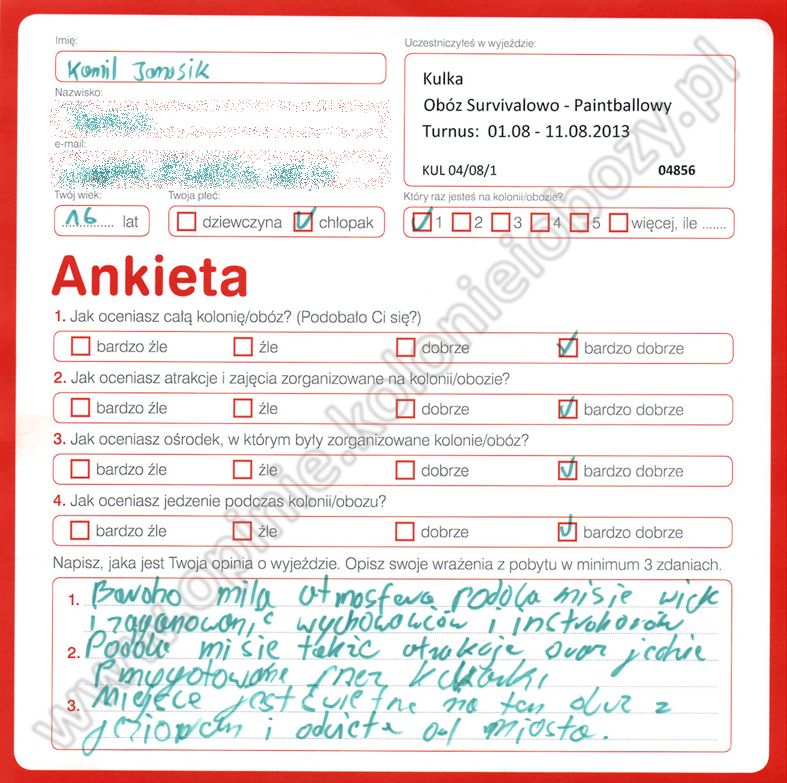 Imię:
Kamil Janosik
Nazwisko:
e-mail:
Twój wiek:
16 lat
Twoja płeć:
dziewczyna chłopak
Uczestniczyłeś w wyjeździe:
Kulka
Obóz Survivalowo - Paintballowy
Turnus: 01.08 - 11.08.2013
KUL 04/08/1 04856
Który raz jesteś na kolonii/obozie?
1 2 3 4 5 więcej, ile .......
Ankieta
1. Jak oceniasz całą kolonię/obóz? (Podobało Ci się?)
bardzo źle źle dobrze bardzo dobrze
2. Jak oceniasz atrakcje i zajęcia zorganizowane na kolonii/obozie?
bardzo źle źle dobrze bardzo dobrze
3. Jak oceniasz ośrodek, w którym były zorganizowane kolonie/obóz?
bardzo źle źle dobrze bardzo dobrze
4. Jak oceniasz jedzenie podczas kolonii/obozu?
bardzo źle źle dobrze bardzo dobrze
Napisz, jaka jest Twoja opinia o wyjeździe. Opisz swoje wrażenia z pobytu w minimum 3 zdaniach.
1. Bardzo mila atmosfera podoba mi sie
i wychowawców i
2. mi sie także atrakcje oraz
przez kucharki
3. Miejsce jest świetne na ten z
jeziorem i od miasta.
www.opinie.kolonieiobozy.pl